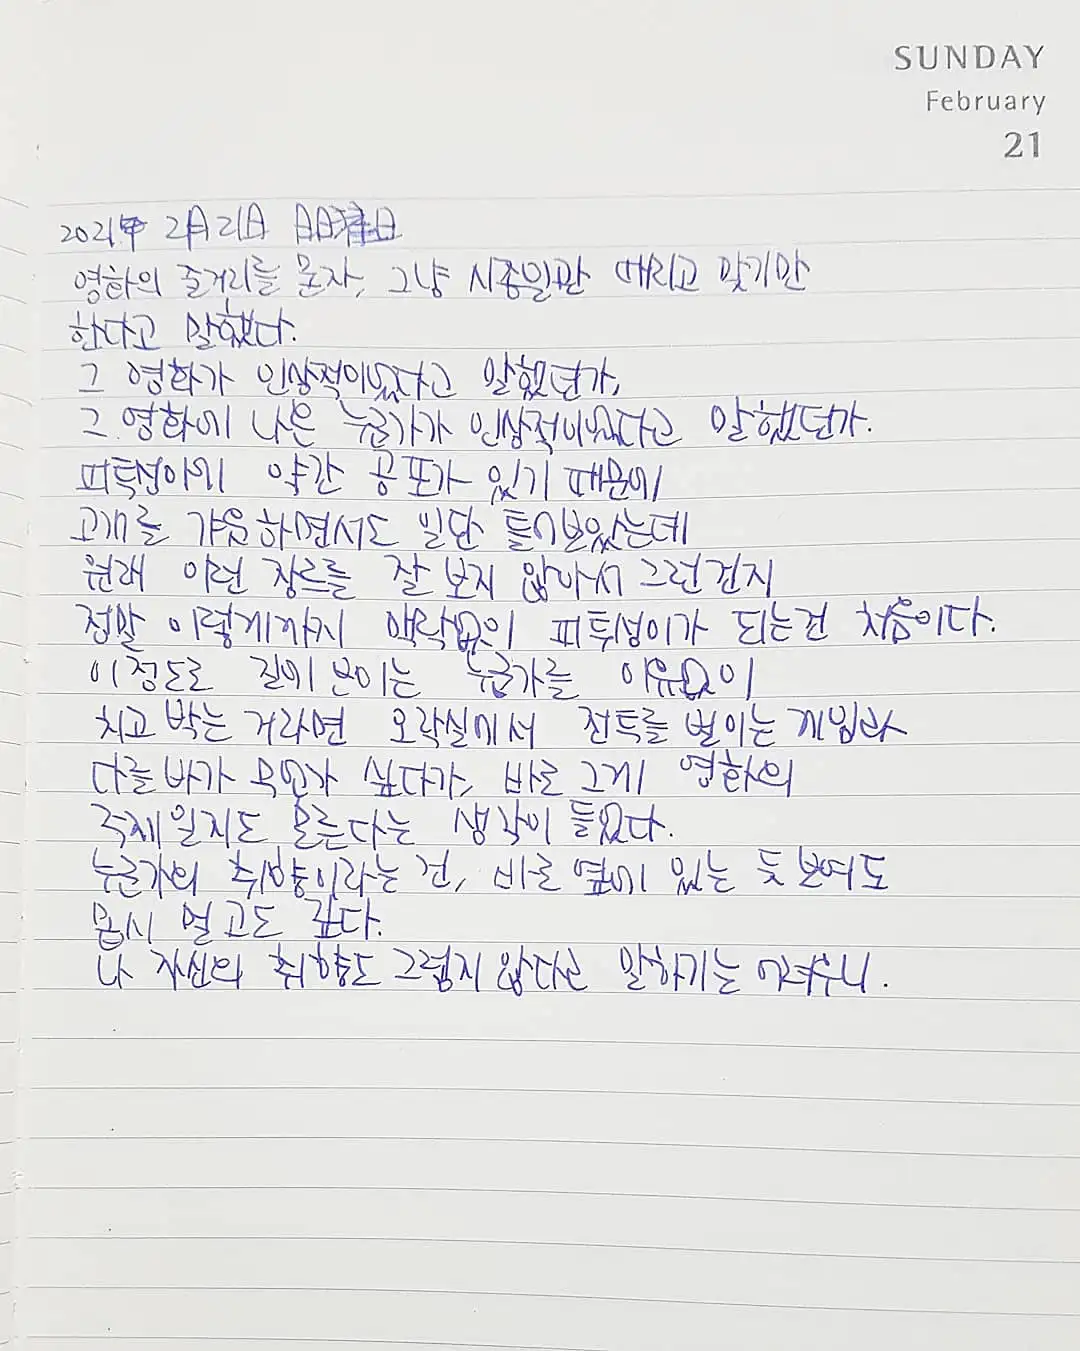 SUNDAY
February
21
2021年 2月 21日 日曜日
영화의 줄거리를 묻자, 그냥 시종일관 때리고 맞기만
한다고 말했다.
그 영화가 인상적이었다고 말했던가,
그 영화에 나온 누군가가 인상적이었다고 말했던가.
피투성이의 약간 공포가 있기 때문에
고개를 갸웃하면서도 일단 틀어보았는데
원래 이런 장르를 잘 보지 않아서 그런건지
정말 이렇게까지 맥락없이 피투성이가 되는건 처음이다.
이정도로 길에 보이는 누군가를 이유없이
치고 박는 거라면 오락실에서 전투를 벌이는 게임과
다를바가 무언가 싶다가, 바로 그게 영화의
주제일지도 모른다는 생각이 들었다.
누군가의 취향이라는 건, 바로 옆에 있는 듯 보여도
몹시 멀고도 깊다.
나 자신의 취향도 그렇지 않다곤 말하기는 어려우니.